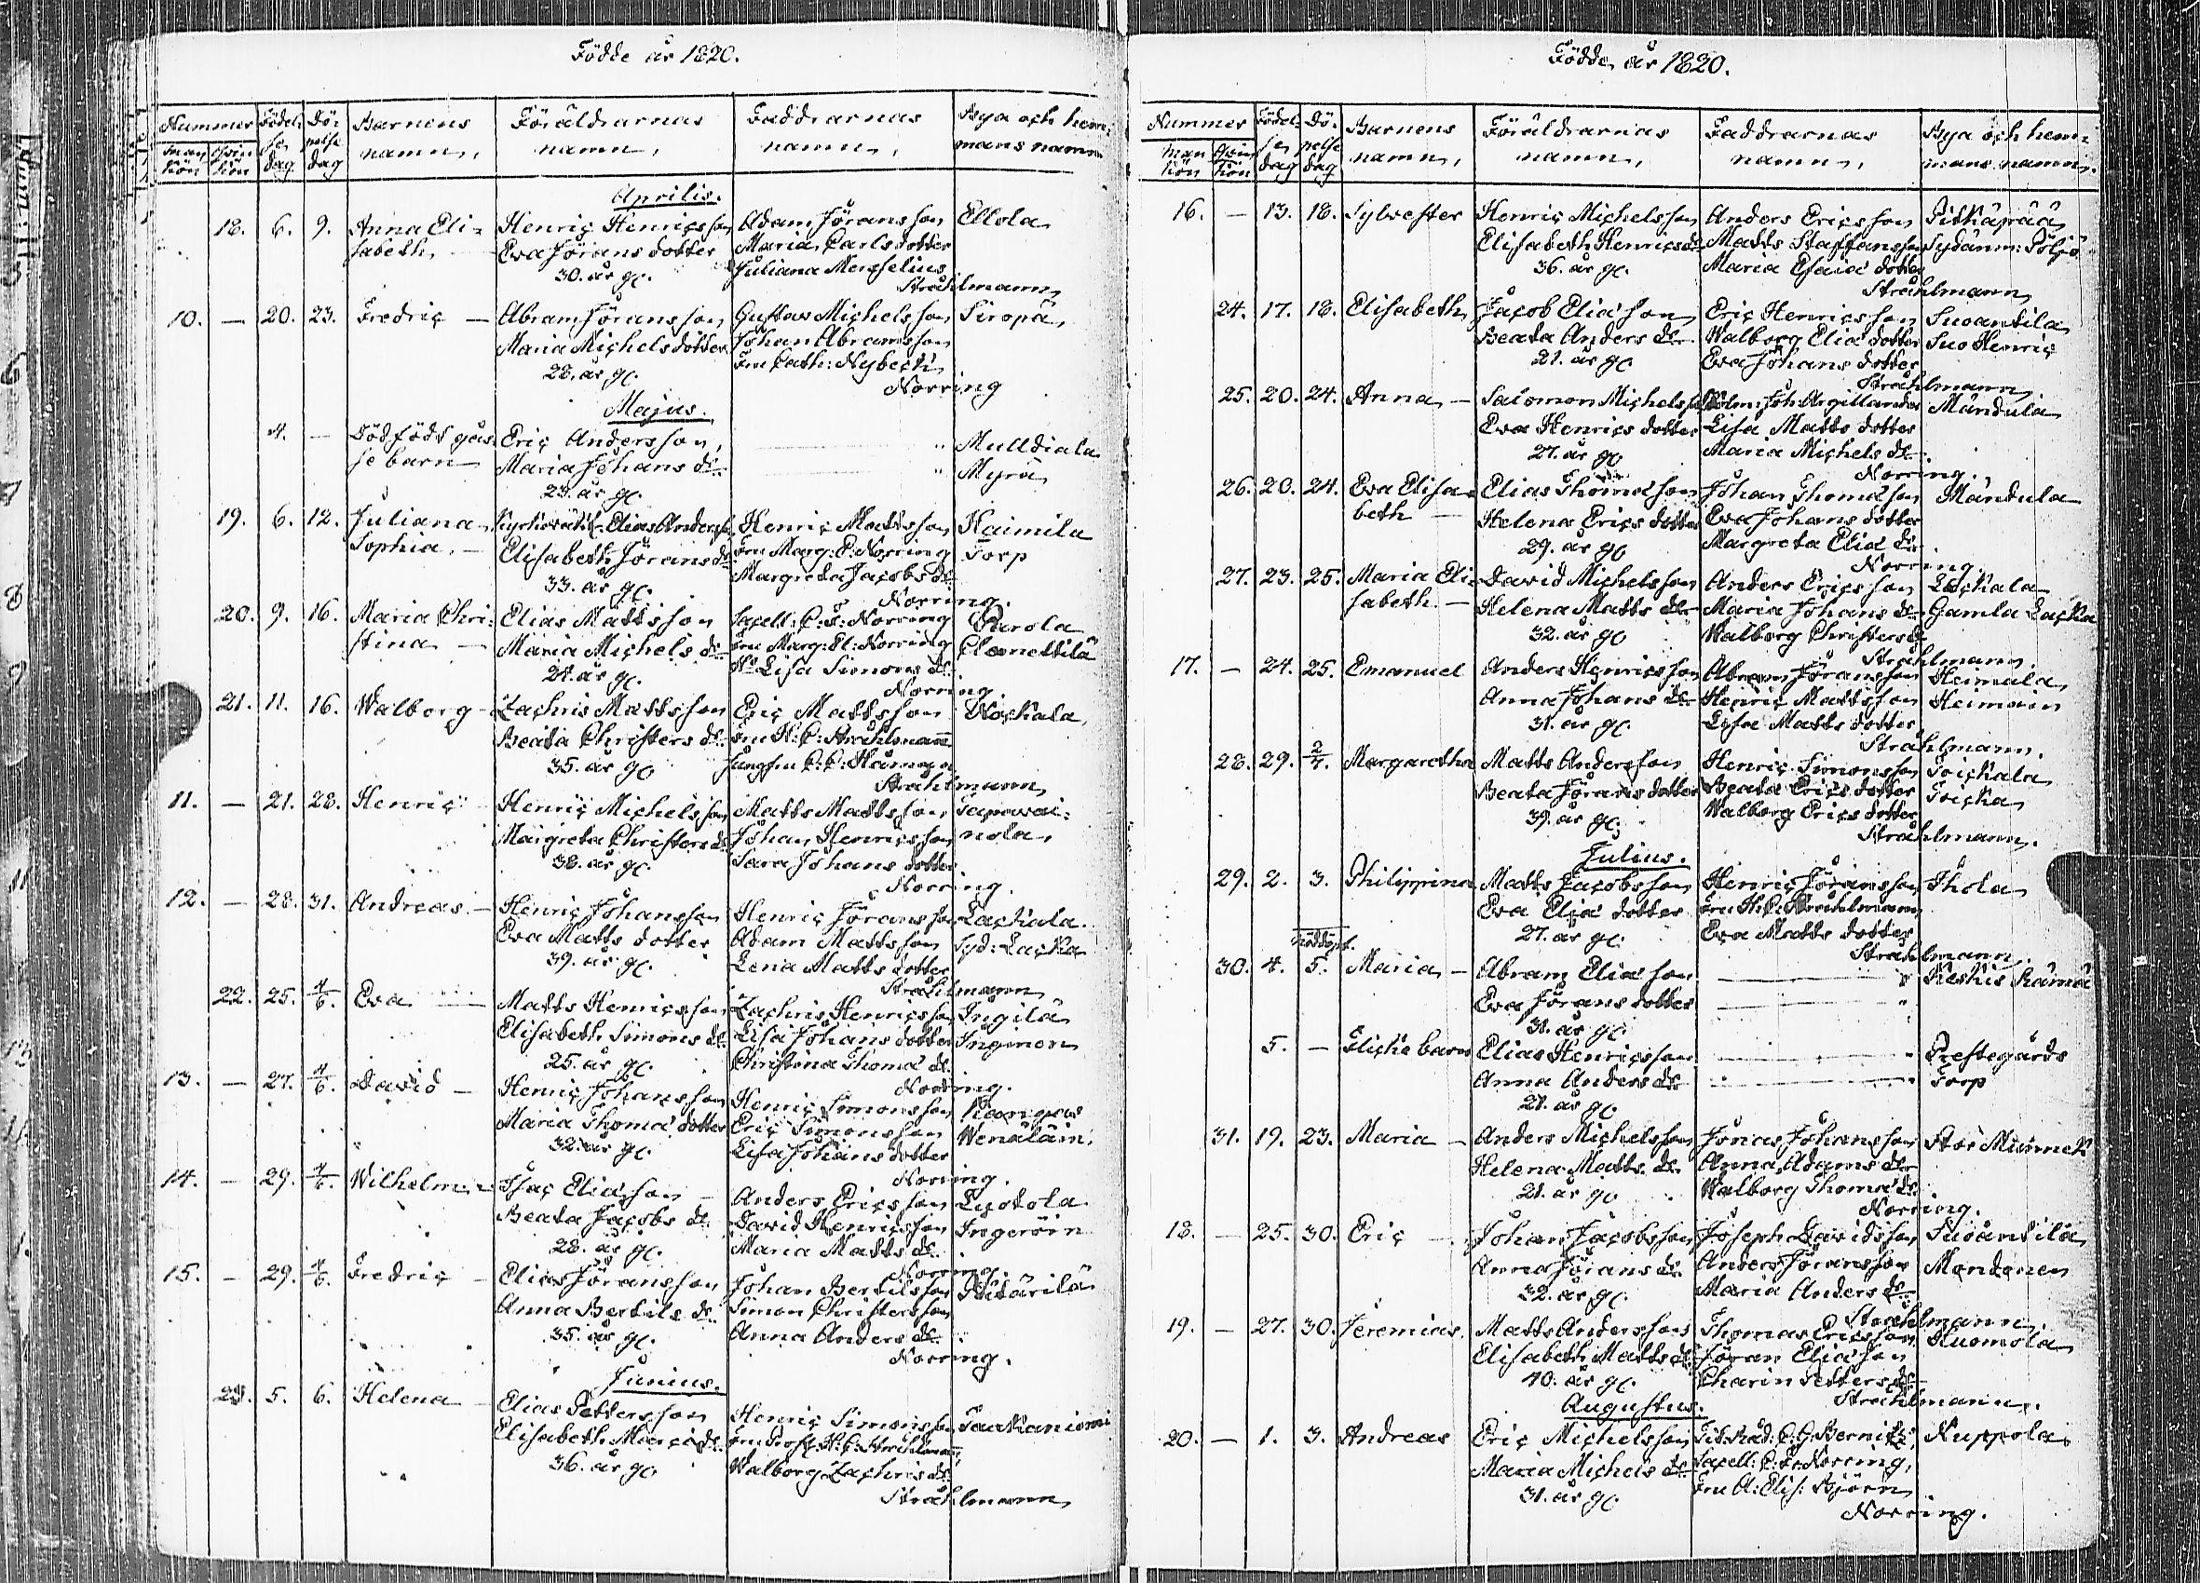 Födde år 1820.
Nummer
man kön
qvin kön
Födel- se dag
Dö- pelse dag
Barnens namn,
Föräldrarnas namn,
Faddrarnas namn,
Bya och hem- mans namn
Aprilis.
18. 6. 9. Anna Eli- Henric Henricsson Adam Jöransson Ellola
sabeth, Eva Jörans dotter Maria Carls dotter
30. år gl. Juliana
Stråhlmann
10. — 20. 23. Fredric — Abram Jöransson Gustav Michelsson Siropä
Maria Michelsdotter Johan Abramsson
28. år gl. Fru Cath: Nybeck
Norring
Majus.
4. — Dödfödt gås- Eric Andersson, Mulldiala
se barn Maria Johans dr. Myrä
23. år gl.
19. 6. 12. Juliana Elias Anders Henric Mattsson Haimila
Sophia. — Elisabeth Jörans dr Fru Marg: C: Norring Torp
33. år gl. Margreta Jacobs dr
Norring.
20. 9. 16. Maria Chri- Elias Mattsson Capell: C: F: Norring
stina — Maria Michels dr. Fru Marg: El: Norring Clemettilä
år gl. Lisa Simons dr
Norring
21. 11. 16. Walborg Zachris Mattsson Eric Mattsson
Beata Christers dr. Fru H: C: Stråhlmann
35. år gl. Jungfru
Stråhlmann
11. — 21. 28. Henric Henric Michelsson Matts Mattsson Sapavai-
Margreta Christers dr Johan Henricsson nola
38. år gl. Sara Johans dotter
Norring.
12. — 28. 31. Andreas. — Henric Johansson Henric Jöransson Lackala.
Eva Matts dotter Adam Mattsson Syd: Lacka
39. år gl. Lena Matts dotter
Stråhlmann
22. 25. 4/6. Eva — Matts Henricsson Zachris Henricsson Ingilä
Elisabeth Simons dr. Lisa Johans dotter Inginen
25. år gl. Christina Thoma dr.
Norring.
13. — 27. 4/6. David — Henric Johansson Henric Simonsson Kangas
Maria Thoma dotter Eric Simonsson Wenäläin.
32. år gl. Lisa Johans dotter
Norring.
14. — 29. 4/6. Wilhelm Isac Eliasson Anders Ericsson
Beata Jacobs dr. David Henricsson Ingeröin
28. år gl. Maria Matts dr.
Norring.
15. — 29. 4/6. Fredric Elias Jöransson Johan Bertilsson
Anna Bertils dr. Simon Christersson
35. år gl. Anna Anders dr.
Norring.
Junius.
23. 5. 6. Helena — Elias Pettersson Henric Simonsson Saukaniemi
Elisabeth dr. Fru Prost. H: C: Stråhlmann,
36. år gl. Walborg Zachris dr
Stråhlmann
Födde år 1820.
Nummer
man kön
qvin kön
Födel- se dag
Dö- pelse dag
Barnens namn,
Föräldrarnas namn,
Faddrarnas namn,
Bya och hem- mans namn.
16. — 13. 18. Sylvester Henric Michelsson Anders Ericsson Pitkäpää
Elisabeth Henrics dr Matts Staffansson Sydänm: Pöljö
36. år gl. Maria Esaia dotter
Stråhlmann
24. 17. 18. Elisabeth Jacob Eliasson Eric Henricsson Suoantila
Beata Anders dr. Walborg Elia dotter Suo Henric
21. år gl. Eva Johans dotter
Stråhlmann
25. 20. 24. Anna — Salomon Michelsson Joh: Argillander Mändula
Eva Henrics dotter Lisa Matts dotter
27. år gl. Maria Michels dr.
Norring.
26. 20. 24. Eva Elisa- Elias Thomasson Johan Thomasson Mändula
beth — Helena Erics dotter Eva Johans dotter
29. år gl. Margreta Elia dr.
Norring.
27. 23. 25. Maria Eli- David Michelsson Anders Ericsson Lackala
sabeth. — Helena Matts dr. Maria Johans dr. Gamla Lacka
32. år gl. Walborg Christers dr
Stråhlmann.
17. — 24. 25. Emanuel Anders Henricsson Abram Jöransson Heimala
Anna Johans dr Henric Mattsson Heimain
31. år gl. Lisa Matts dotter
Stråhlmann.
28. 29. 2/7. Margaretha Matts Andersson Henric Simonsson Toickala
Beata Jörans dotter Beata Erics dotter Toicka
39. år gl. Walborg Erics dotter
Stråhlmann.
Julius.
29. 2. 3. Philippina Matts Jacobsson Henric Jöransson Ihola
Eva Elia dotter Fru H: C: Stråhlmann
27. år gl. Eva Matts dotter
Stråhlmann.
nöddöpt.
30. 4. 5. Maria — Abram Eliasson Keskis
Eva Jörans dotter
31. år gl.
5. — Flicke barn Elias Henricsson Prestegårds
Anna Anders dr Torp
27. år gl.
31. 19. 23. Maria — Anders Michelsson Jonas Johansson Stor Munnek
Helena Matts dr. Anna Adams dr
21. år gl. Walborg Thoma dr.
Norring.
18. — 25. 30. Eric — Johan Jacobsson Joseph Davidsson Suoantila
Anna Jörans dr Anders Jöransson Mondonen
32. år gl. Maria Anders dr.
Stråhlmann
19. — 27. 30. Jeremias. Matts Andersson Thomas Ericsson Kuomola
Elisabeth Matts dr Jöran Eliasson
40. år gl. Charin Petters dr
Stråhlmann.
Augustus.
20. — 1. 3. Andreas Eric Michelsson Tit. Råd: C: G: Nuppola
Maria Michels dr. Capell: C: F: Norring,
31. år gl. Fru A: Elis: Björn
Norring.